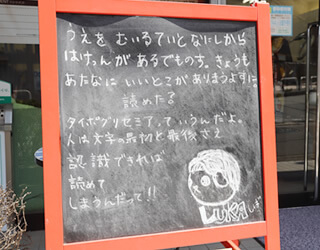 うえを むいるていと なにしから
はけっんが あるでものす。きょうも
あなたに いいとこが ありまうよすに。
読めた？
タイポグリセミア、ていうんだよ。
人は文字の最初と最後さえ
認識できれば
読めて
しまうんだって!!